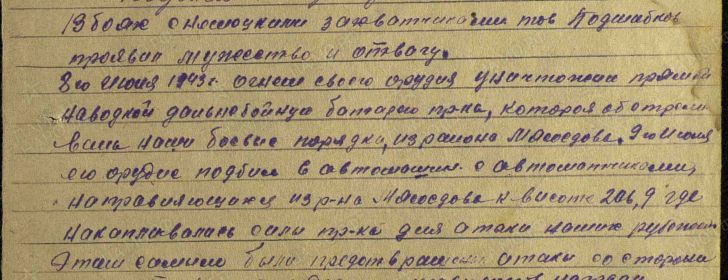 В боях с немецкими захватчиками тов Подшибков
проявил мужество и отвагу.
8го июля 1943г. огнем своего орудия уничтожил прямой
наводкой дальнобойную батарею пр-ка, которая обстрели
вала наши боевые порядки, из района Мясоедова. 9го июля
его орудие подбило 2 автомашины с автоматчиками,
направляющихся из р-на Мясоедова к высоте 206,9 где
накапливались силы пр-ка для атаки наших рубежей.
Этим самым были предотвращены атаки со стороны